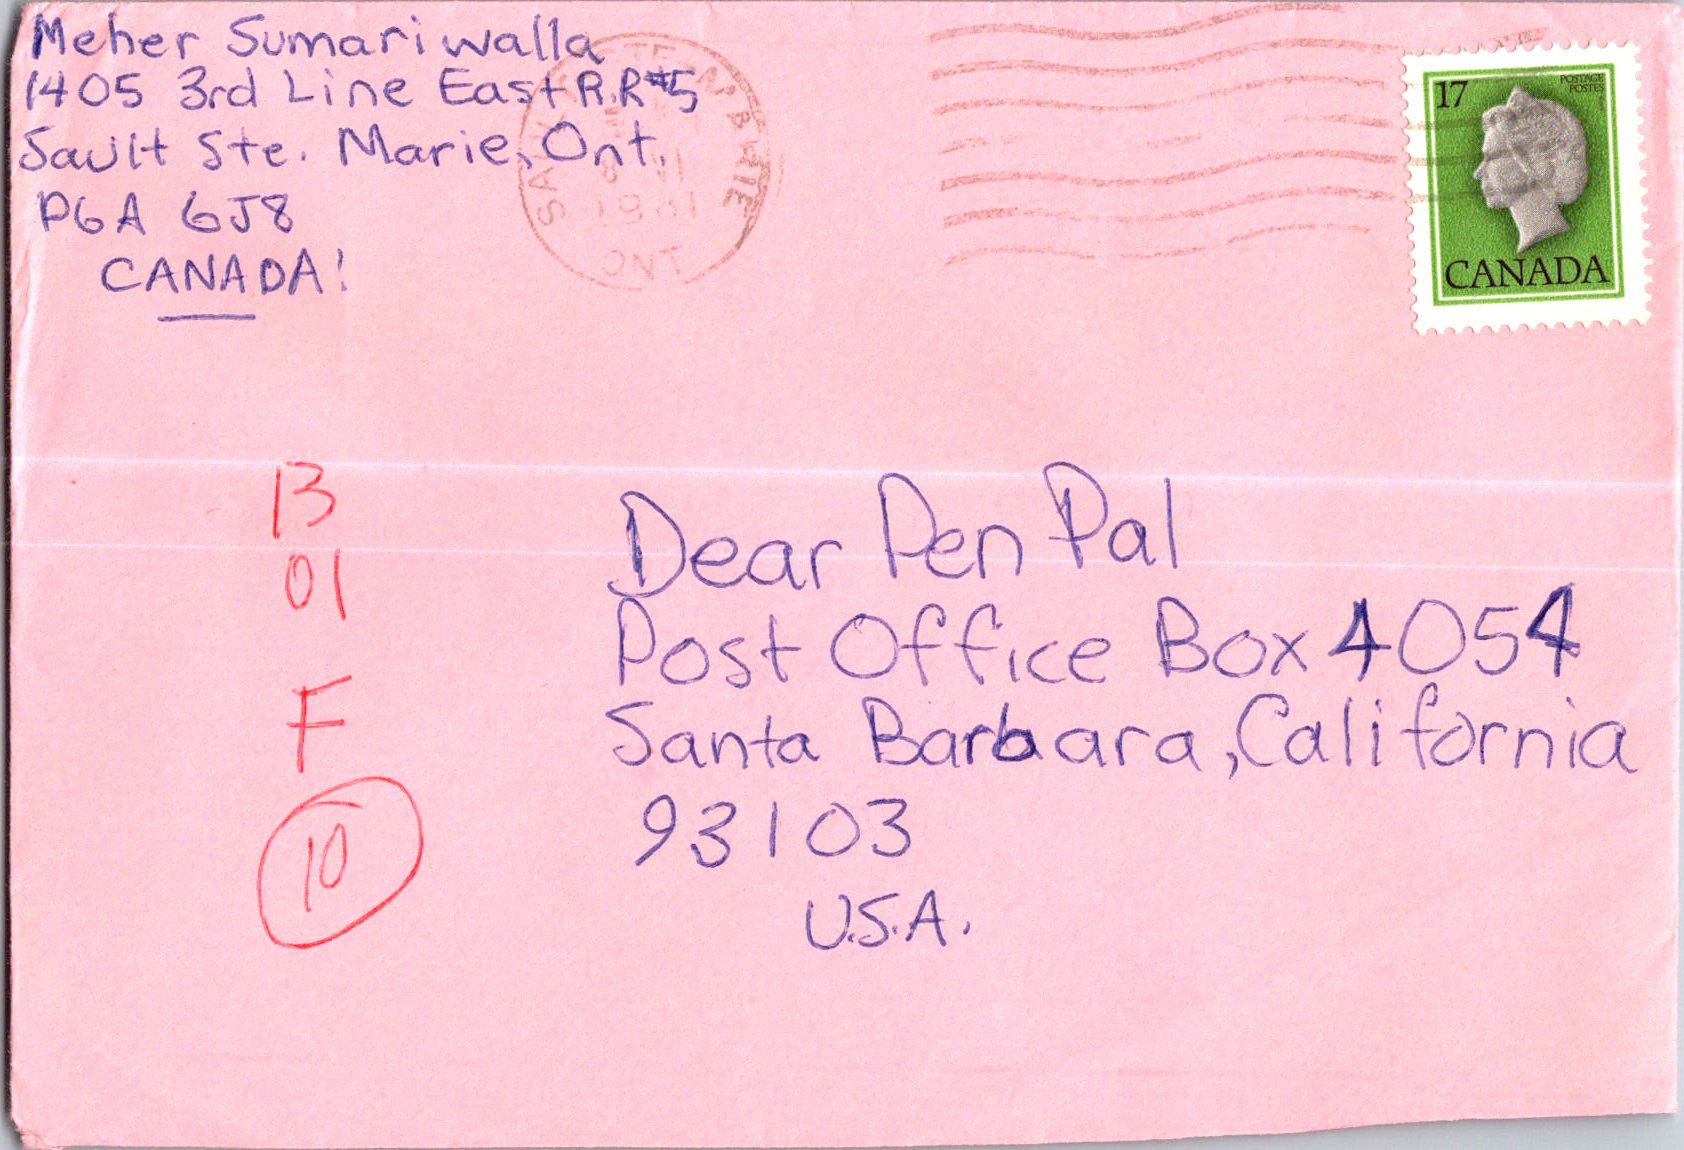 Meher Sumariwalla
1405 3rd Line East R.R#5
Sault Ste. Marie, Ont.
P6A 6J8
CANADA!
ONT
1981
17
POSTAGE
POSTES
CANADA
13
01
F
10
Dear Pen Pal
Post Office Box 4054
Santa Barbara, California
93103
U.S.A.